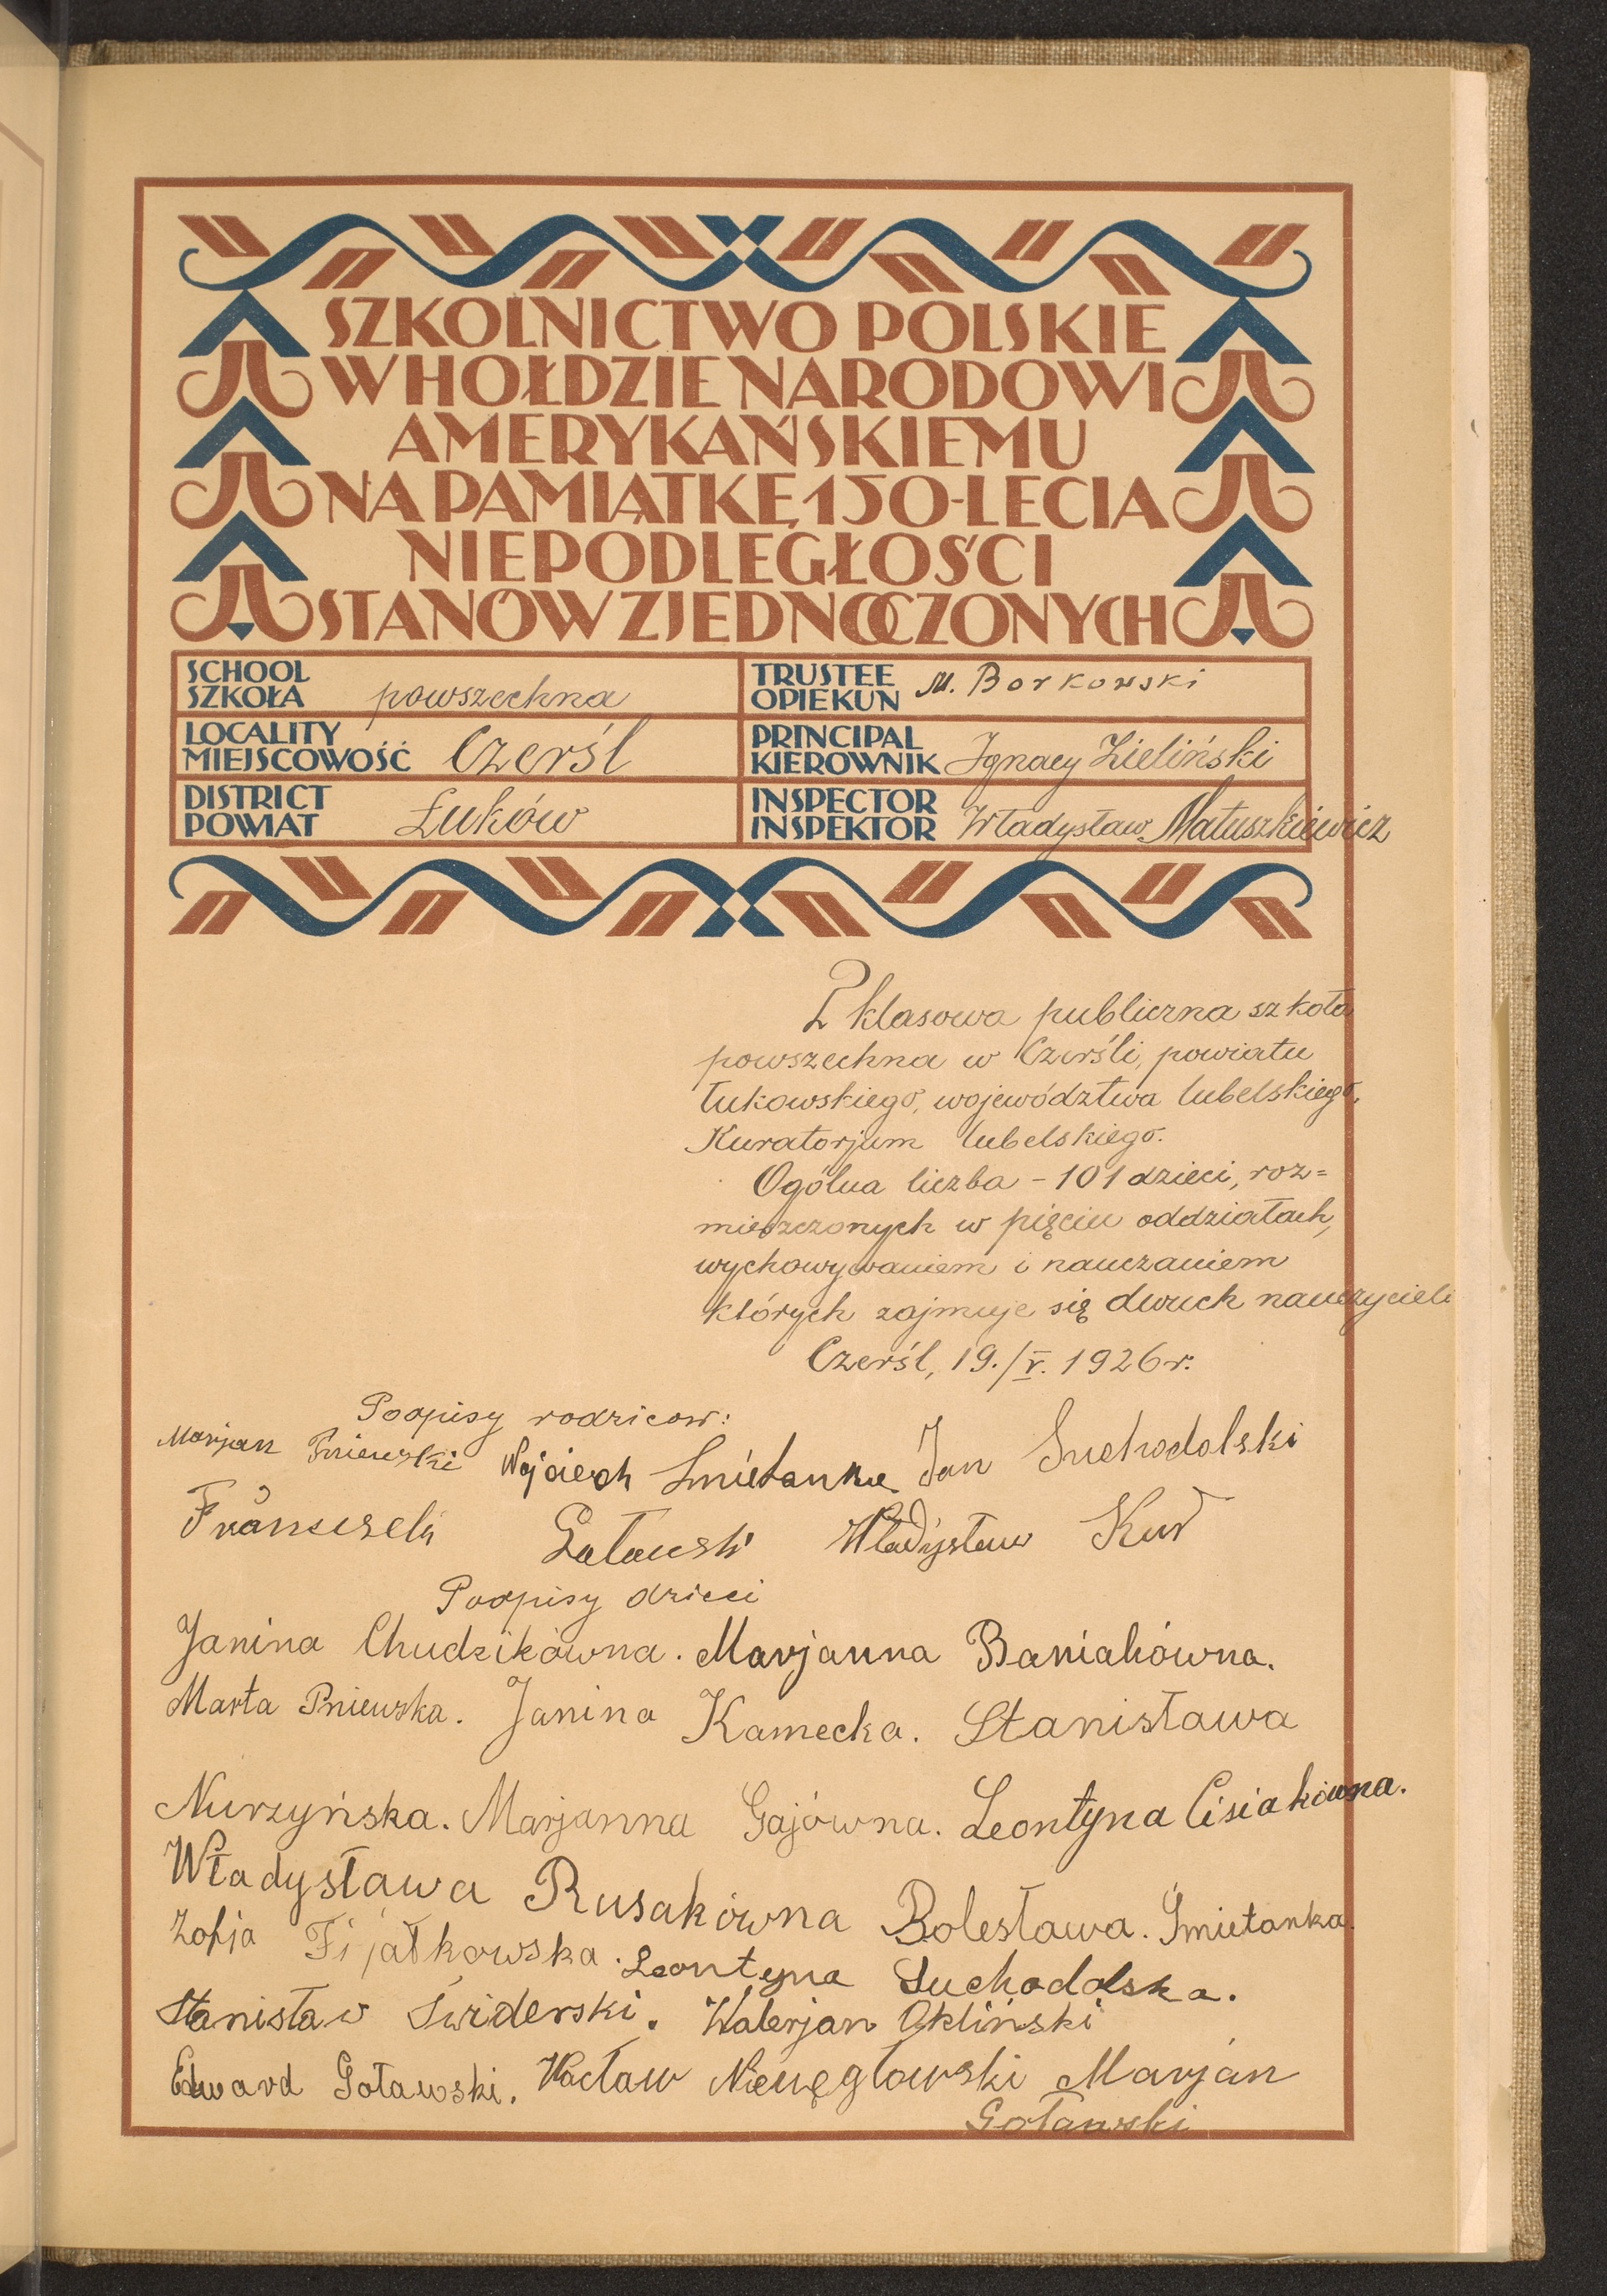 SZKOLNICTWO POLSKIE
W HOŁDZIE NARODOWI
AMERYKAŃSKIEMU
NA PAMIĄTKĘ 150-LECIA
NIEPODLEGŁOŚCI
STANÓW ZJEDNOCZONYCH
SCHOOL
SZKOŁA powszechna
TRUSTEE
OPIEKUN M. Borkowski
LOCALITY
MIEJSCOWOŚĆ Czerśl
PRINCIPAL
KIEROWNIK Ignacy Zieliński
DISTRICT
POWIAT Łuków
INSPECTOR
INSPEKTOR Władysław Matuszkiewicz
2 klasowa publiczna szkoła
powszechna w Czerśli, powiatu
łukowskiego, województwa lubelskiego,
Kuratorjum lubelskiego.
Ogólna liczba - 101 dzieci, roz=
mieszczonych w pięciu oddziałach,
wychowywaniem i nauczaniem
których zajmuje się dwuch nauczycieli
Czerśl, 19./V. 1926 r.
Podpisy rodzicow:
Marjan Pniewski Wojciech Smietanka Jan Suchodolski
Franciszek Władysław Kur
Podpisy dzieci
Janina Chudzikówna. Marjanna Baniakówna.
Marta Pniewska. Janina Kamecka. Stanisława
Nurzyńska. Marjanna Gajówna. Leontyna Cisiakówna.
Władysława Rusakówna Bolesława. Śmietanka.
Zofja Fijałkowska. Leontyna Suchodolska.
Stanisław Świderski. Walerjan Okliński
Edward Goławski. Wacław Niewęgłowski Marjan
Goławski